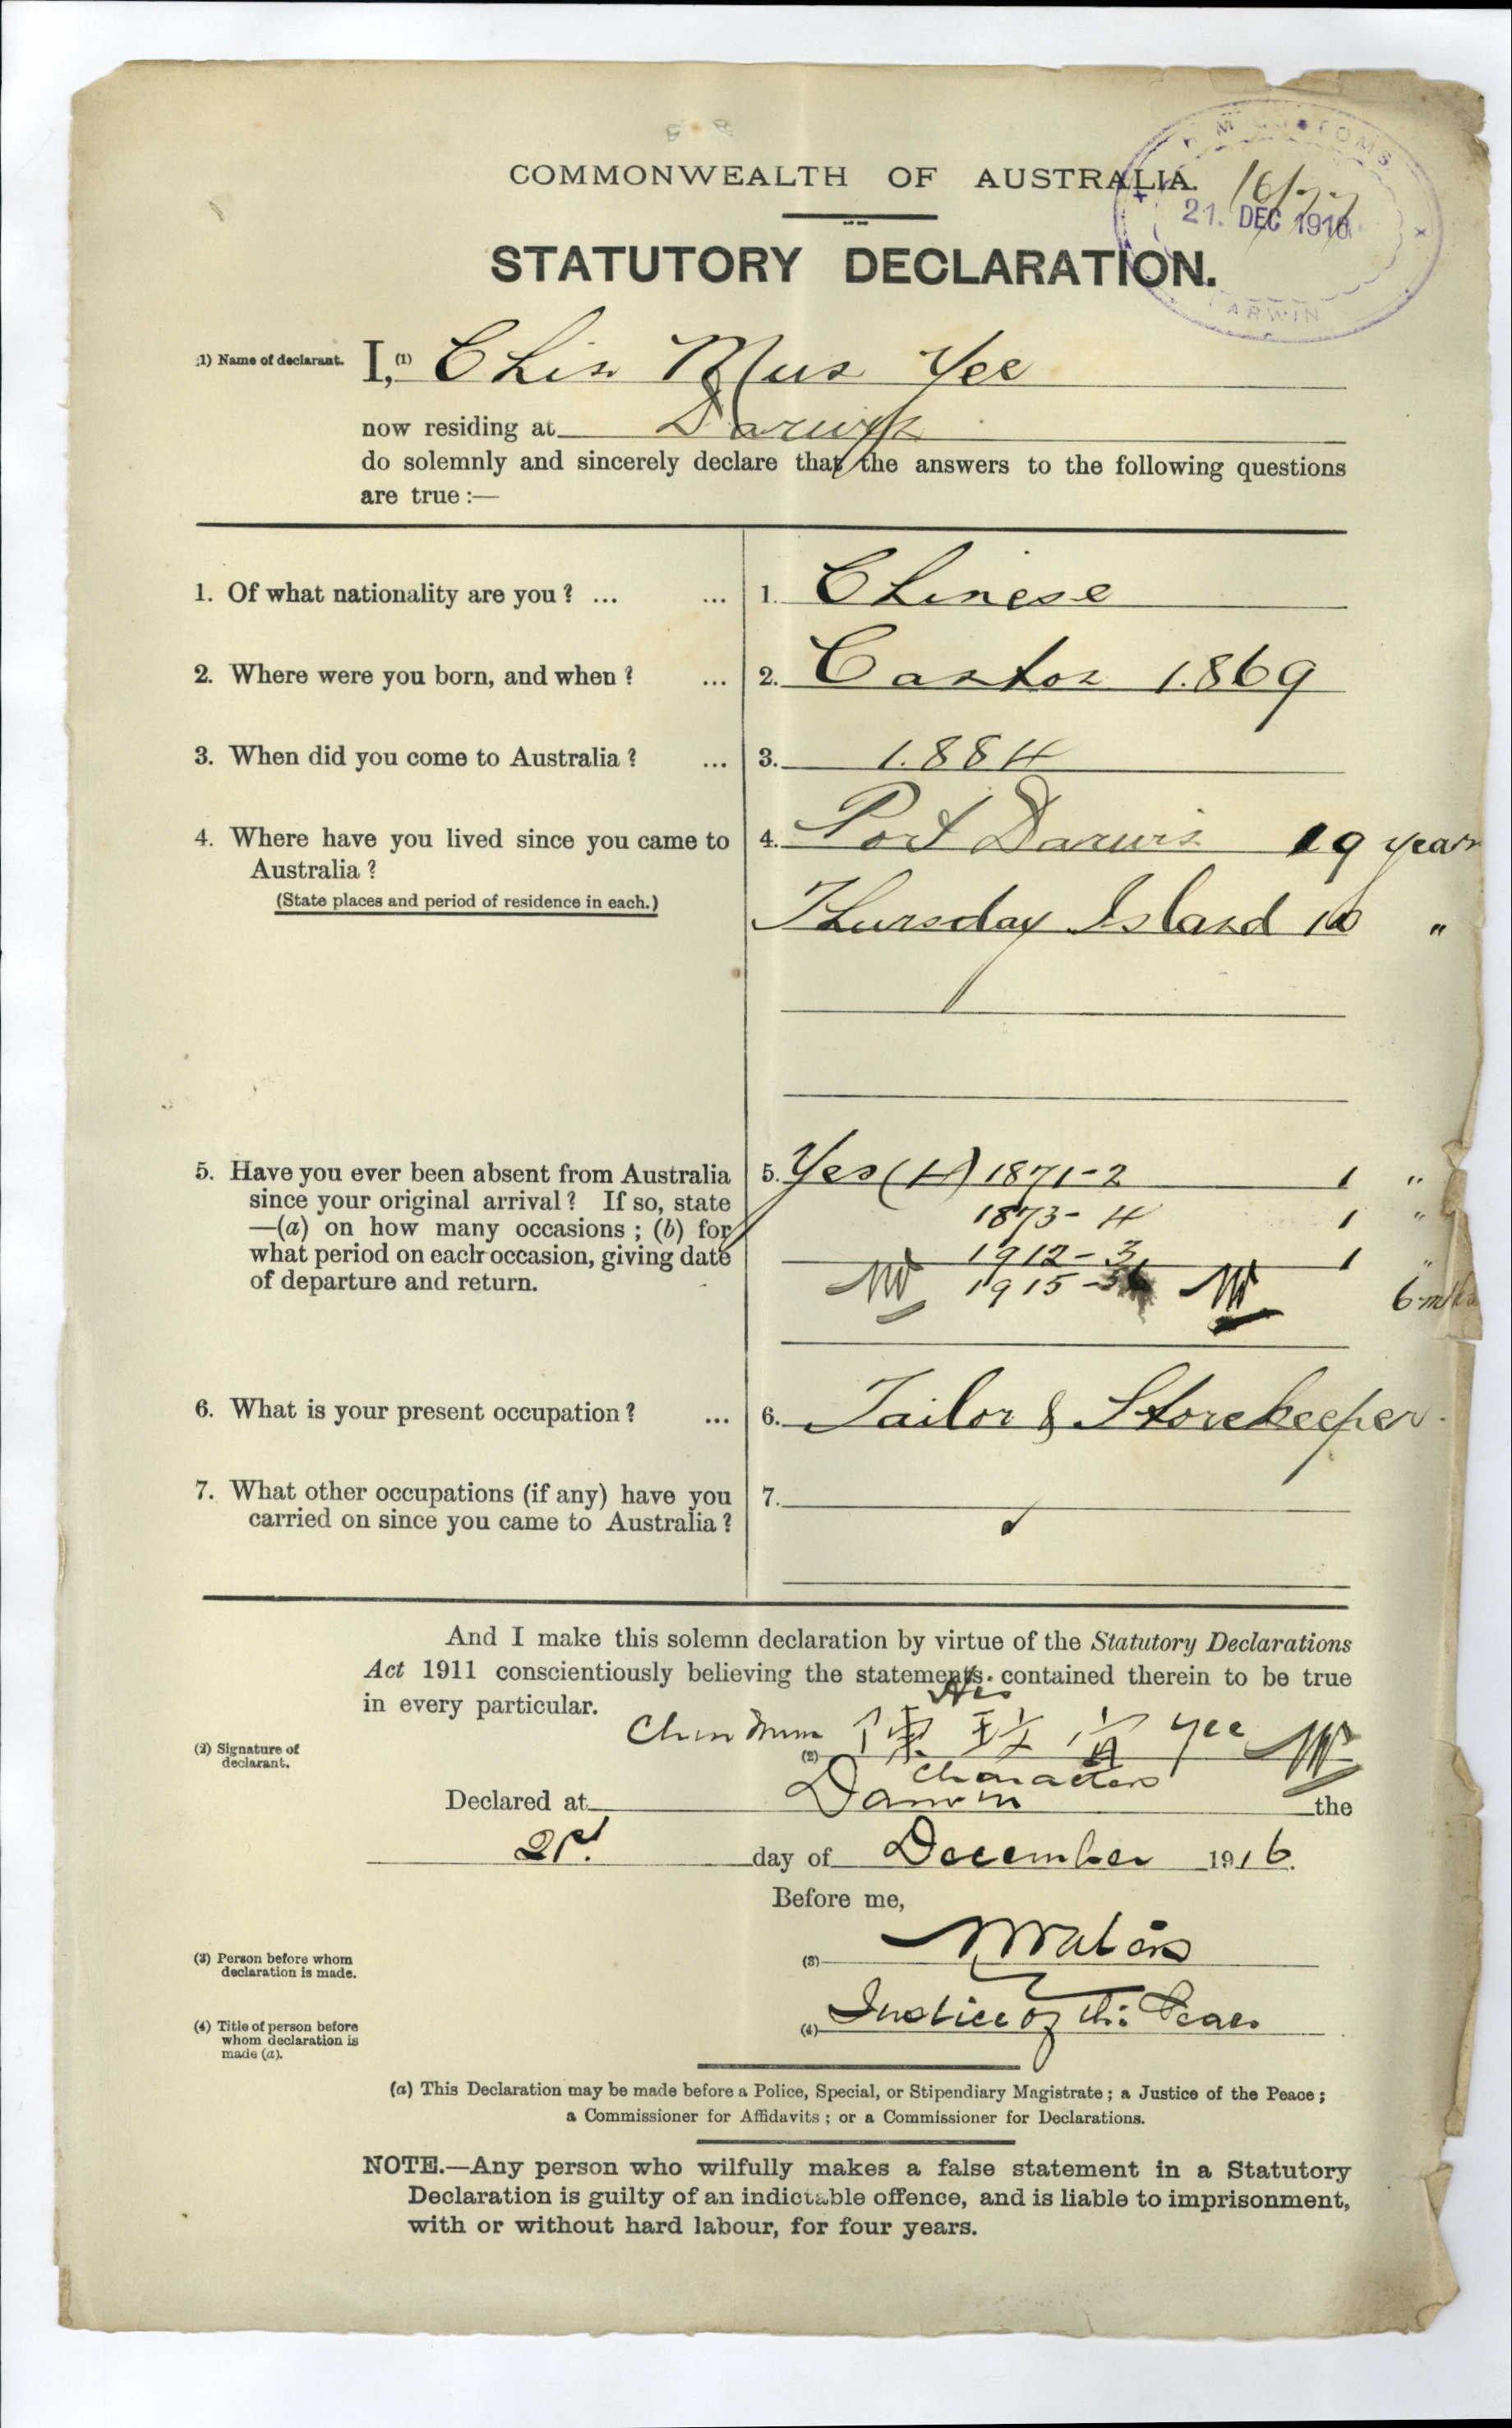 COMMONWEALTH OF AUSTRALIA.
CUSTOMS
16/
21. DEC 1916
DARWIN
STATUTORY DECLARATION.
(1) Name of declarant. I,(1) Chin Mun Yee
now residing at Darwin
do solemnly and sincerely declare that the answers to the following questions
are true :—
1. Of what nationality are you ? ... ... 1. Chinese
2. Where were you born, and when ? ... 2. Canton 1869
3. When did you come to Australia ? ... 3. 1884
4. Where have you lived since you came to 4. Port Darwin 19 years
Australia ?
(State places and period of residence in each.)
Thursday Island 10 "
5. Have you ever been absent from Australia 5. Yes (4) 1871-2 1 "
since your original arrival ? If so, state 1873-4 1 "
—(a) on how many occasions ; (b) for
what period on each occasion, giving date 1912-3 1 "
of departure and return. 1915-6 6 mths
6. What is your present occupation ? ... 6. Tailor & Storekeeper.
7. What other occupations (if any) have you 7.
carried on since you came to Australia ?
And I make this solemn declaration by virtue of the Statutory Declarations
Act 1911 conscientiously believing the statements contained therein to be true
in every particular.
his
(2) Signature of declarant. Chin Mun (2) 陳 Yee
characters
Declared at Darwin the
21st. day of December 1916.
Before me,
(3) Person before whom
declaration is made. (3)
(4) Title of person before
whom declaration is
made (a). (4) Justice of the Peace
(a) This Declaration may be made before a Police, Special, or Stipendiary Magistrate ; a Justice of the Peace ;
a Commissioner for Affidavits ; or a Commissioner for Declarations.
NOTE.—Any person who wilfully makes a false statement in a Statutory
Declaration is guilty of an indictable offence, and is liable to imprisonment,
with or without hard labour, for four years.